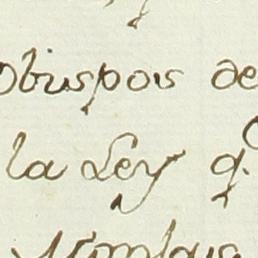 Obispos de
la Ley q.